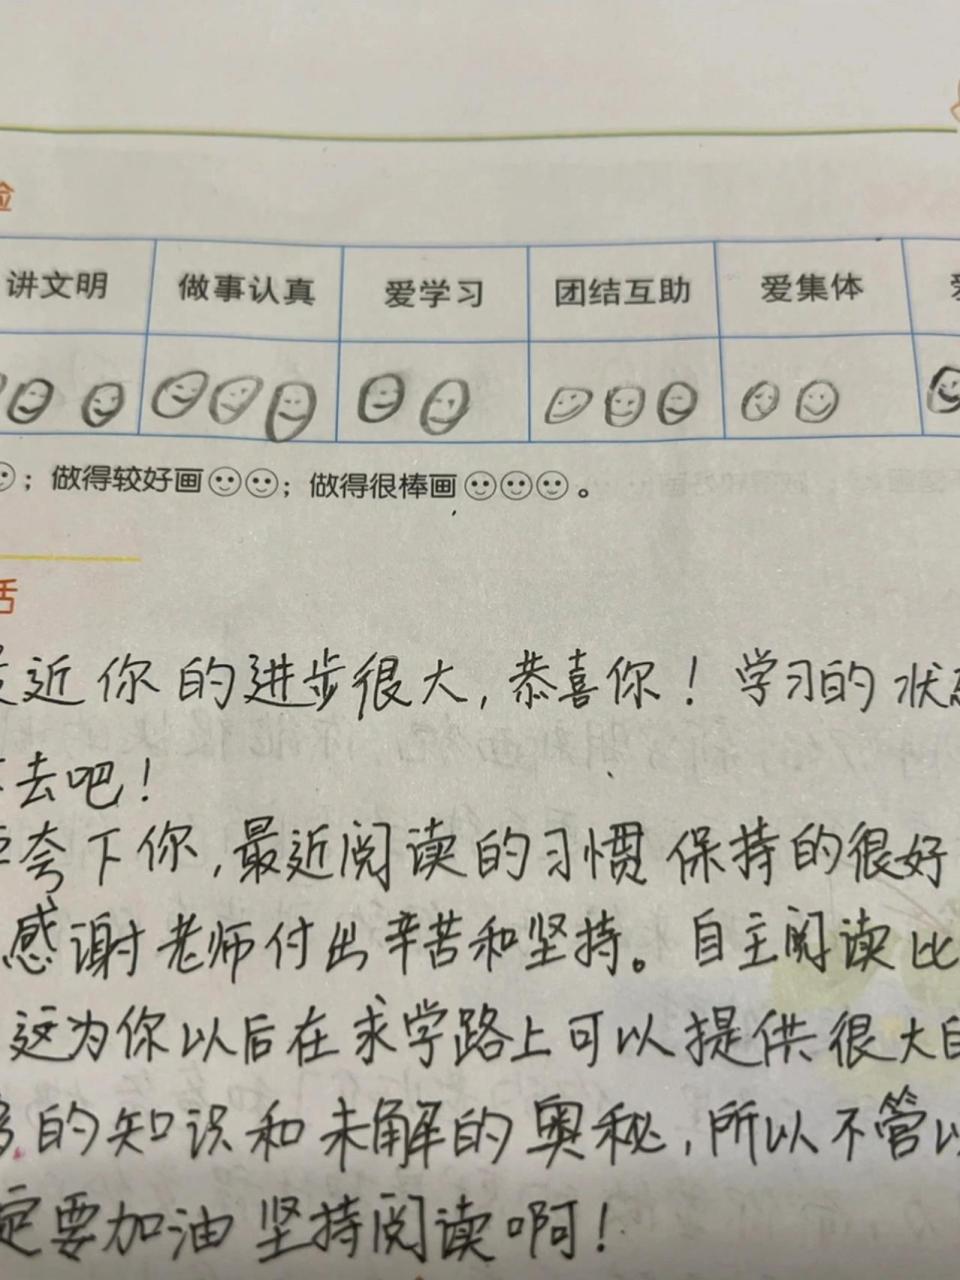 讲文明 做事认真 爱学习 团结互助 爱集体
；做得较好画；做得很棒画。
近你的进步很大，恭喜你！学习的状
去吧！
夸下你，最近阅读的习惯保持的很好
感谢老师付出辛苦和坚持。自主阅读比
这为你以后在求学路上可以提供很大
的知识和未解的奥秘，所以不管
定要加油坚持阅读啊！